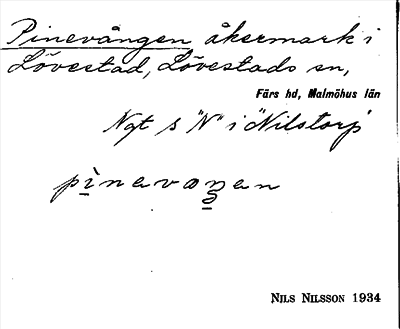 Pinevången åkermark i
Lövestad, Lövestads sn,
Färs hd, Malmöhus län
Ngt s "N" i "Nilstorp"
pinavaŋan
NILS NILSSON 1934